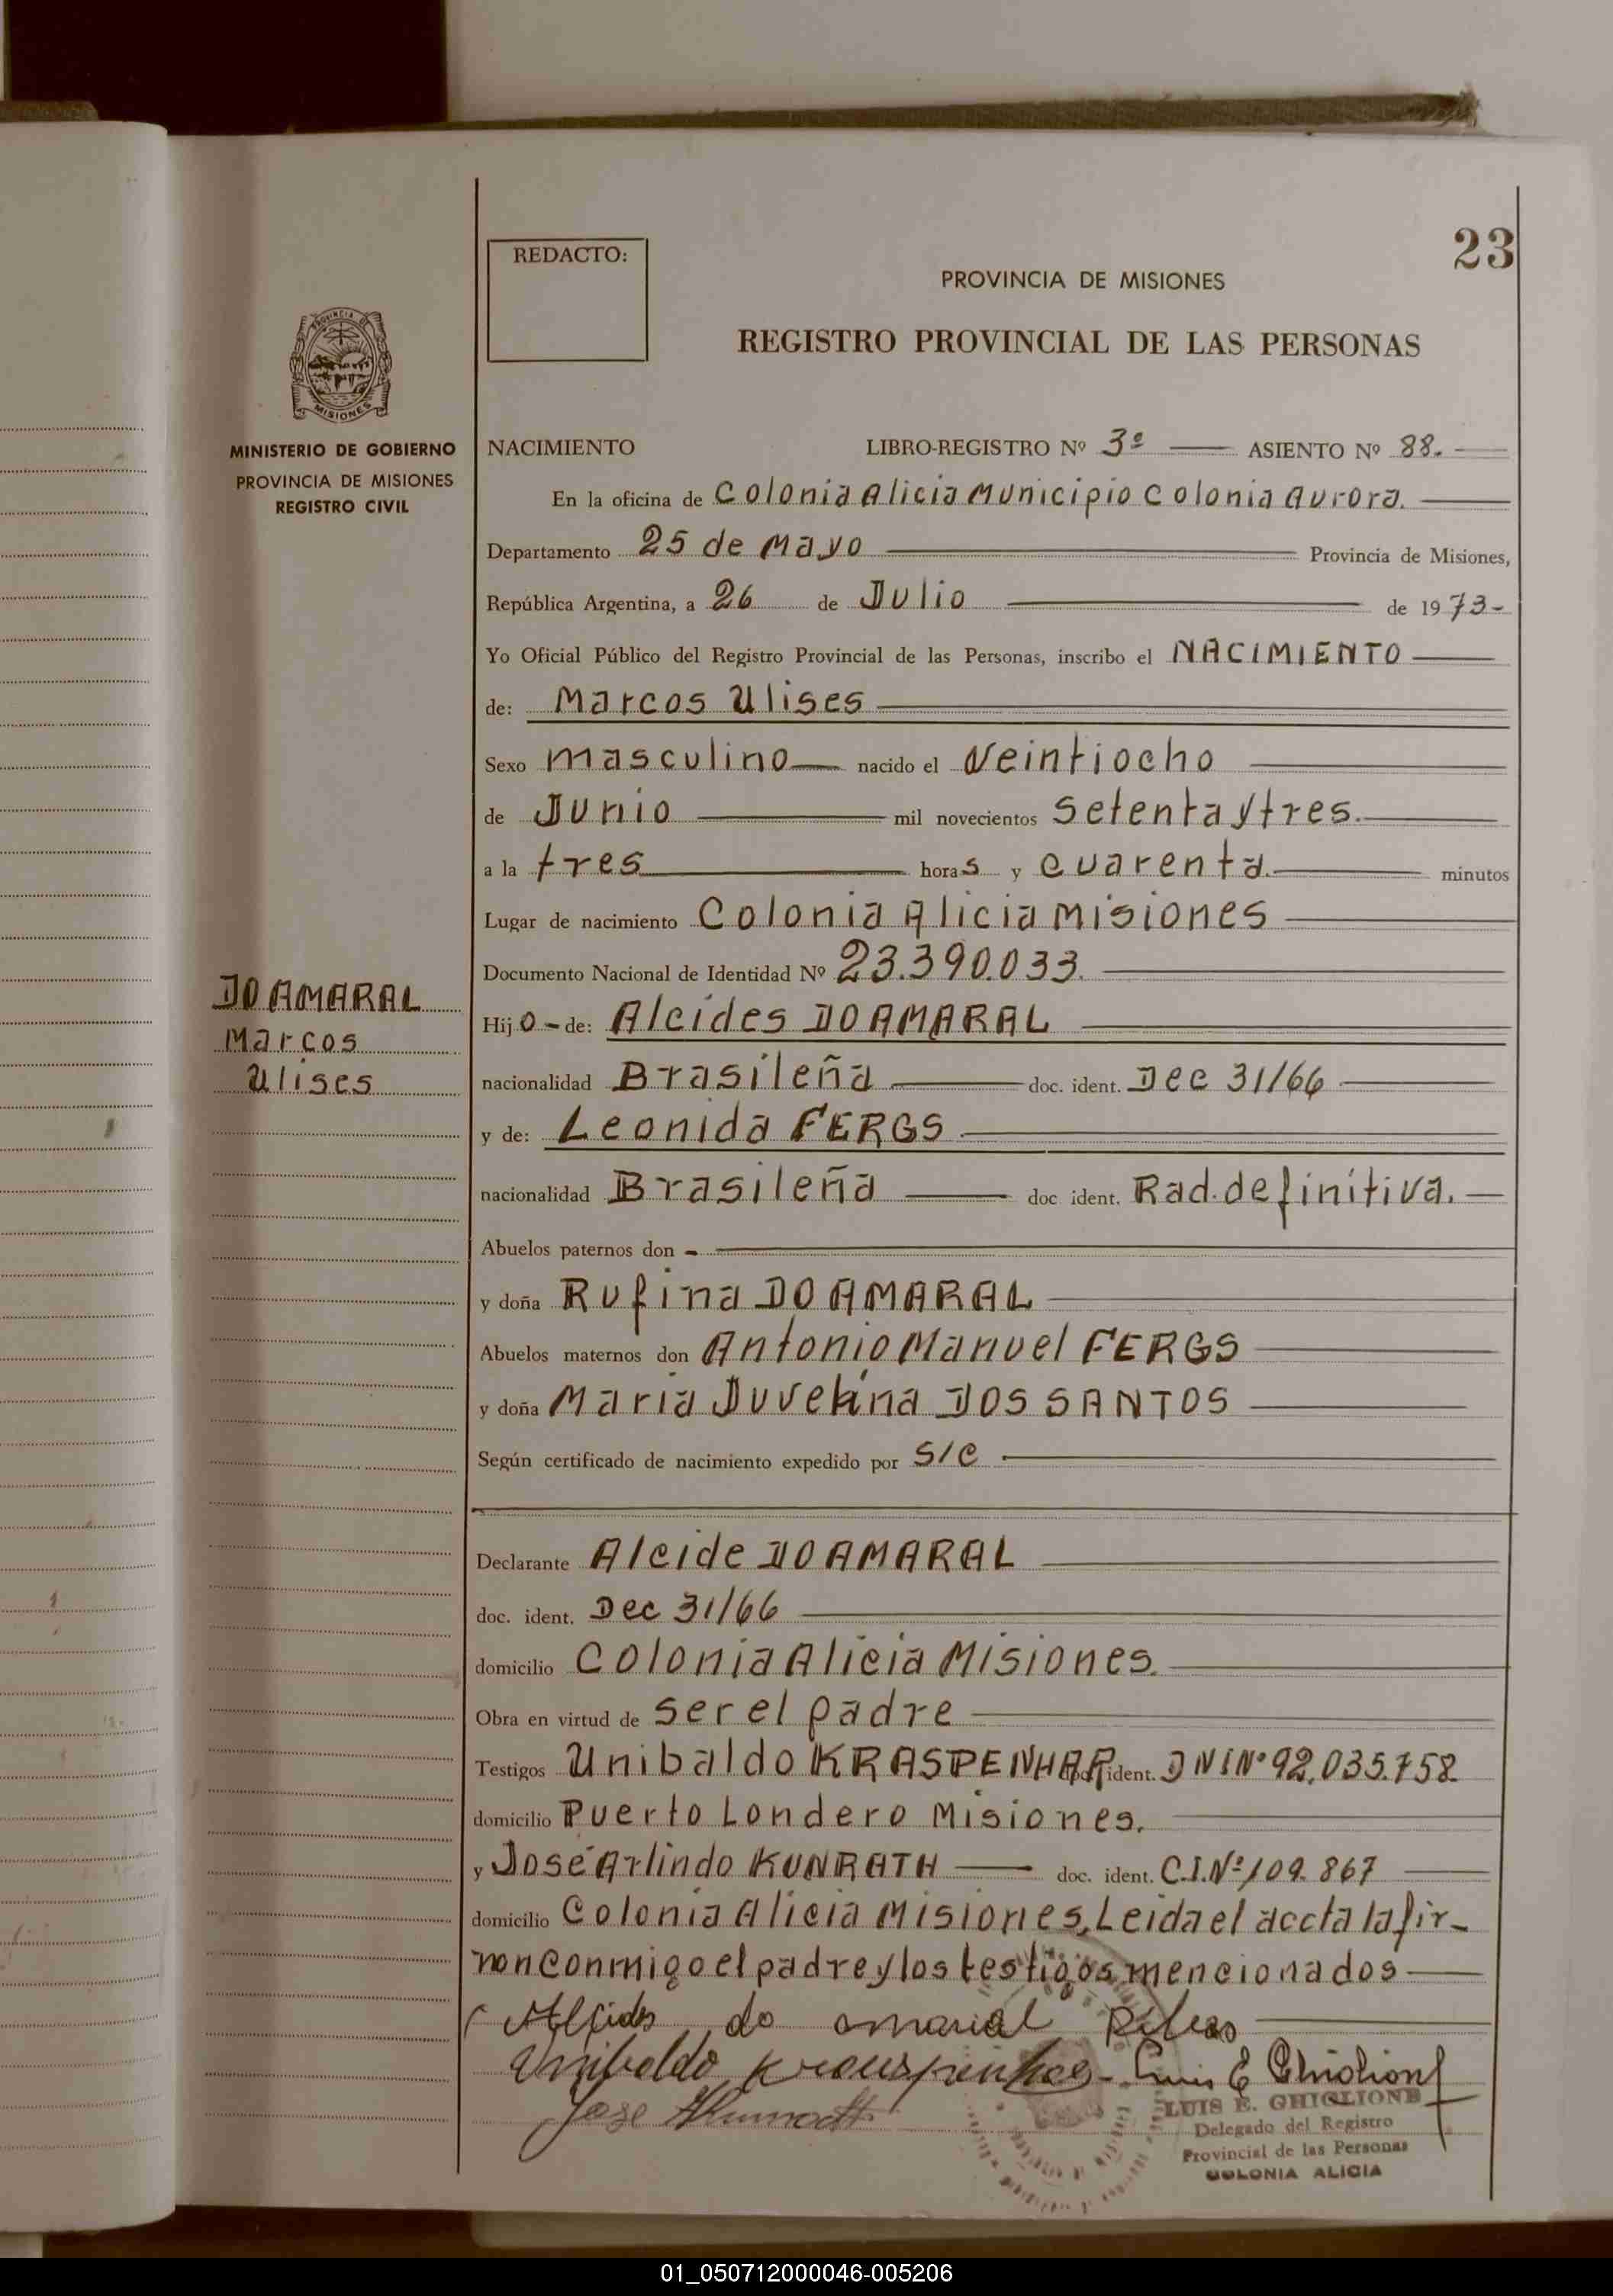 23
REDACTO:
PROVINCIA DE MISIONES
REGISTRO PROVINCIAL DE LAS PERSONAS
PROVINCIA DE
MISIONES
MINISTERIO DE GOBIERNO
PROVINCIA DE MISIONES
REGISTRO CIVIL
NACIMIENTO LIBRO-REGISTRO Nº 3º ASIENTO Nº 88.
En la oficina de Colonia Alicia Municipio Colonia Aurora.
Departamento 25 de Mayo Provincia de Misiones,
República Argentina, a 26 de Julio de 1973-
Yo Oficial Público del Registro Provincial de las Personas, inscribo el NACIMIENTO
de: Marcos Ulises
Sexo masculino nacido el Veintiocho
de Junio mil novecientos setenta y tres.
a la tres horas y cuarenta. minutos
Lugar de nacimiento Colonia Alicia Misiones
Documento Nacional de Identidad Nº 23.390.033.
DO AMARAL
Marcos
Ulises
Hijo - de: Alcides DO AMARAL
nacionalidad Brasileña doc. ident. Dec 31/66
y de: Leonida FERGS
nacionalidad Brasileña doc. ident. Rad. definitiva.
Abuelos paternos don -
y doña Rufina DO AMARAL
Abuelos maternos don Antonio Manuel FERGS
y doña Maria Juvelina DOS SANTOS
Según certificado de nacimiento expedido por S/C
Declarante Alcide DO AMARAL
doc. ident. Dec 31/66
domicilio Colonia Alicia Misiones.
Obra en virtud de ser el padre
Testigos Unibaldo KRASPENHAR doc. ident. DNI Nº 92.035.758
domicilio Puerto Londero Misiones.
y José Arlindo KUNRATH doc. ident. C.I. Nº 109.867
domicilio Colonia Alicia Misiones, Leida el accta la fir-
man conmigo el padre y los testigos mencionados
Alcides do amaral
Unibaldo Krauspenhar - Luis E Ghiglione
Jose
LUIS E. GHIGLIONE
Delegado del Registro
Provincial de las Personas
COLONIA ALICIA
01_050712000046-005206